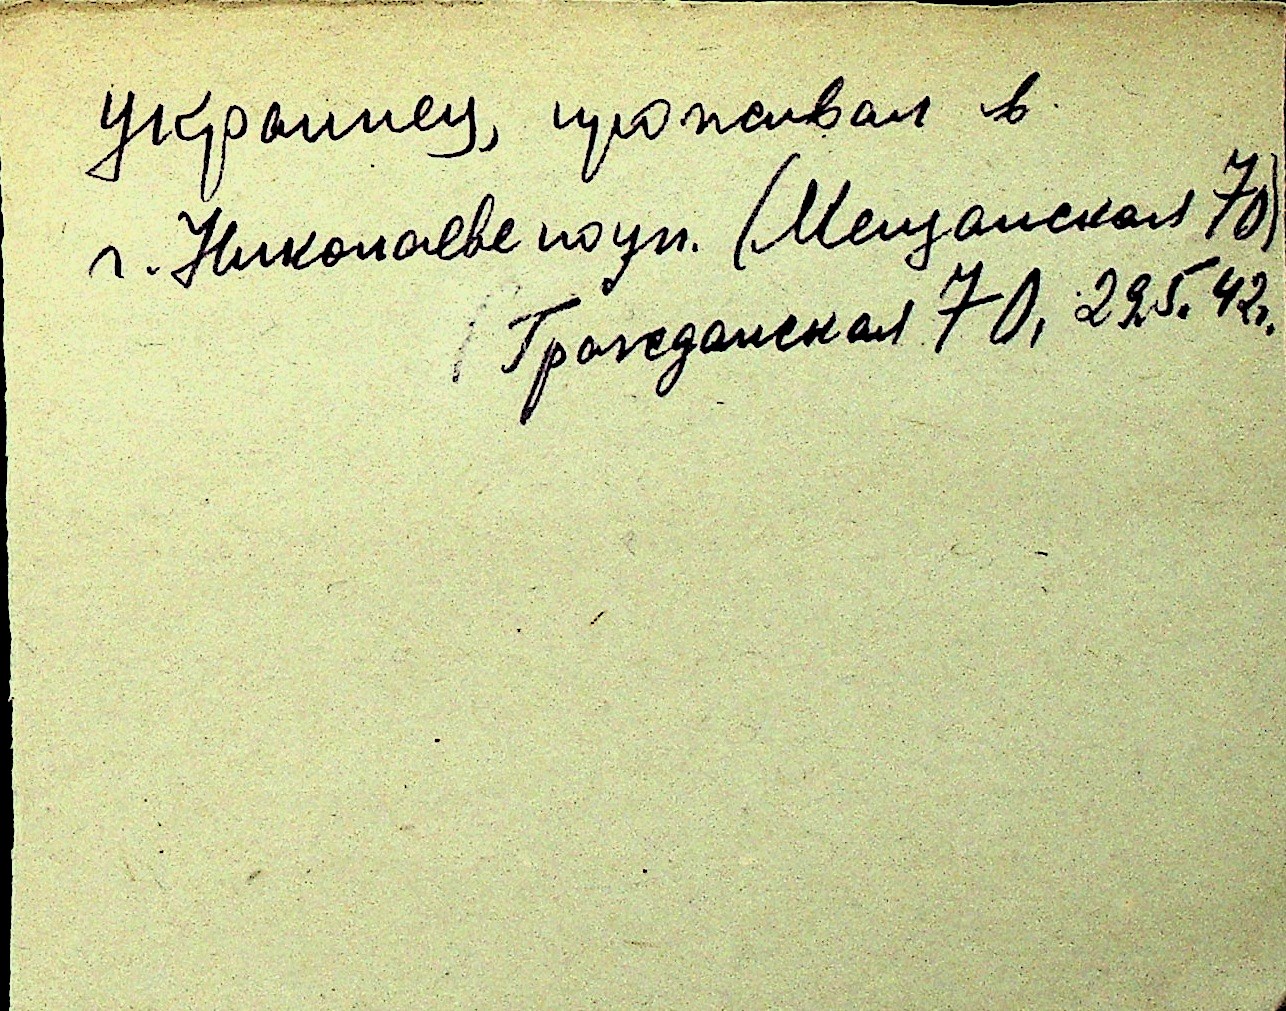 украинец, проживал в
г. Николаеве по ул. (Мещанская 70)
Гражданская 70, 29.5.42г.